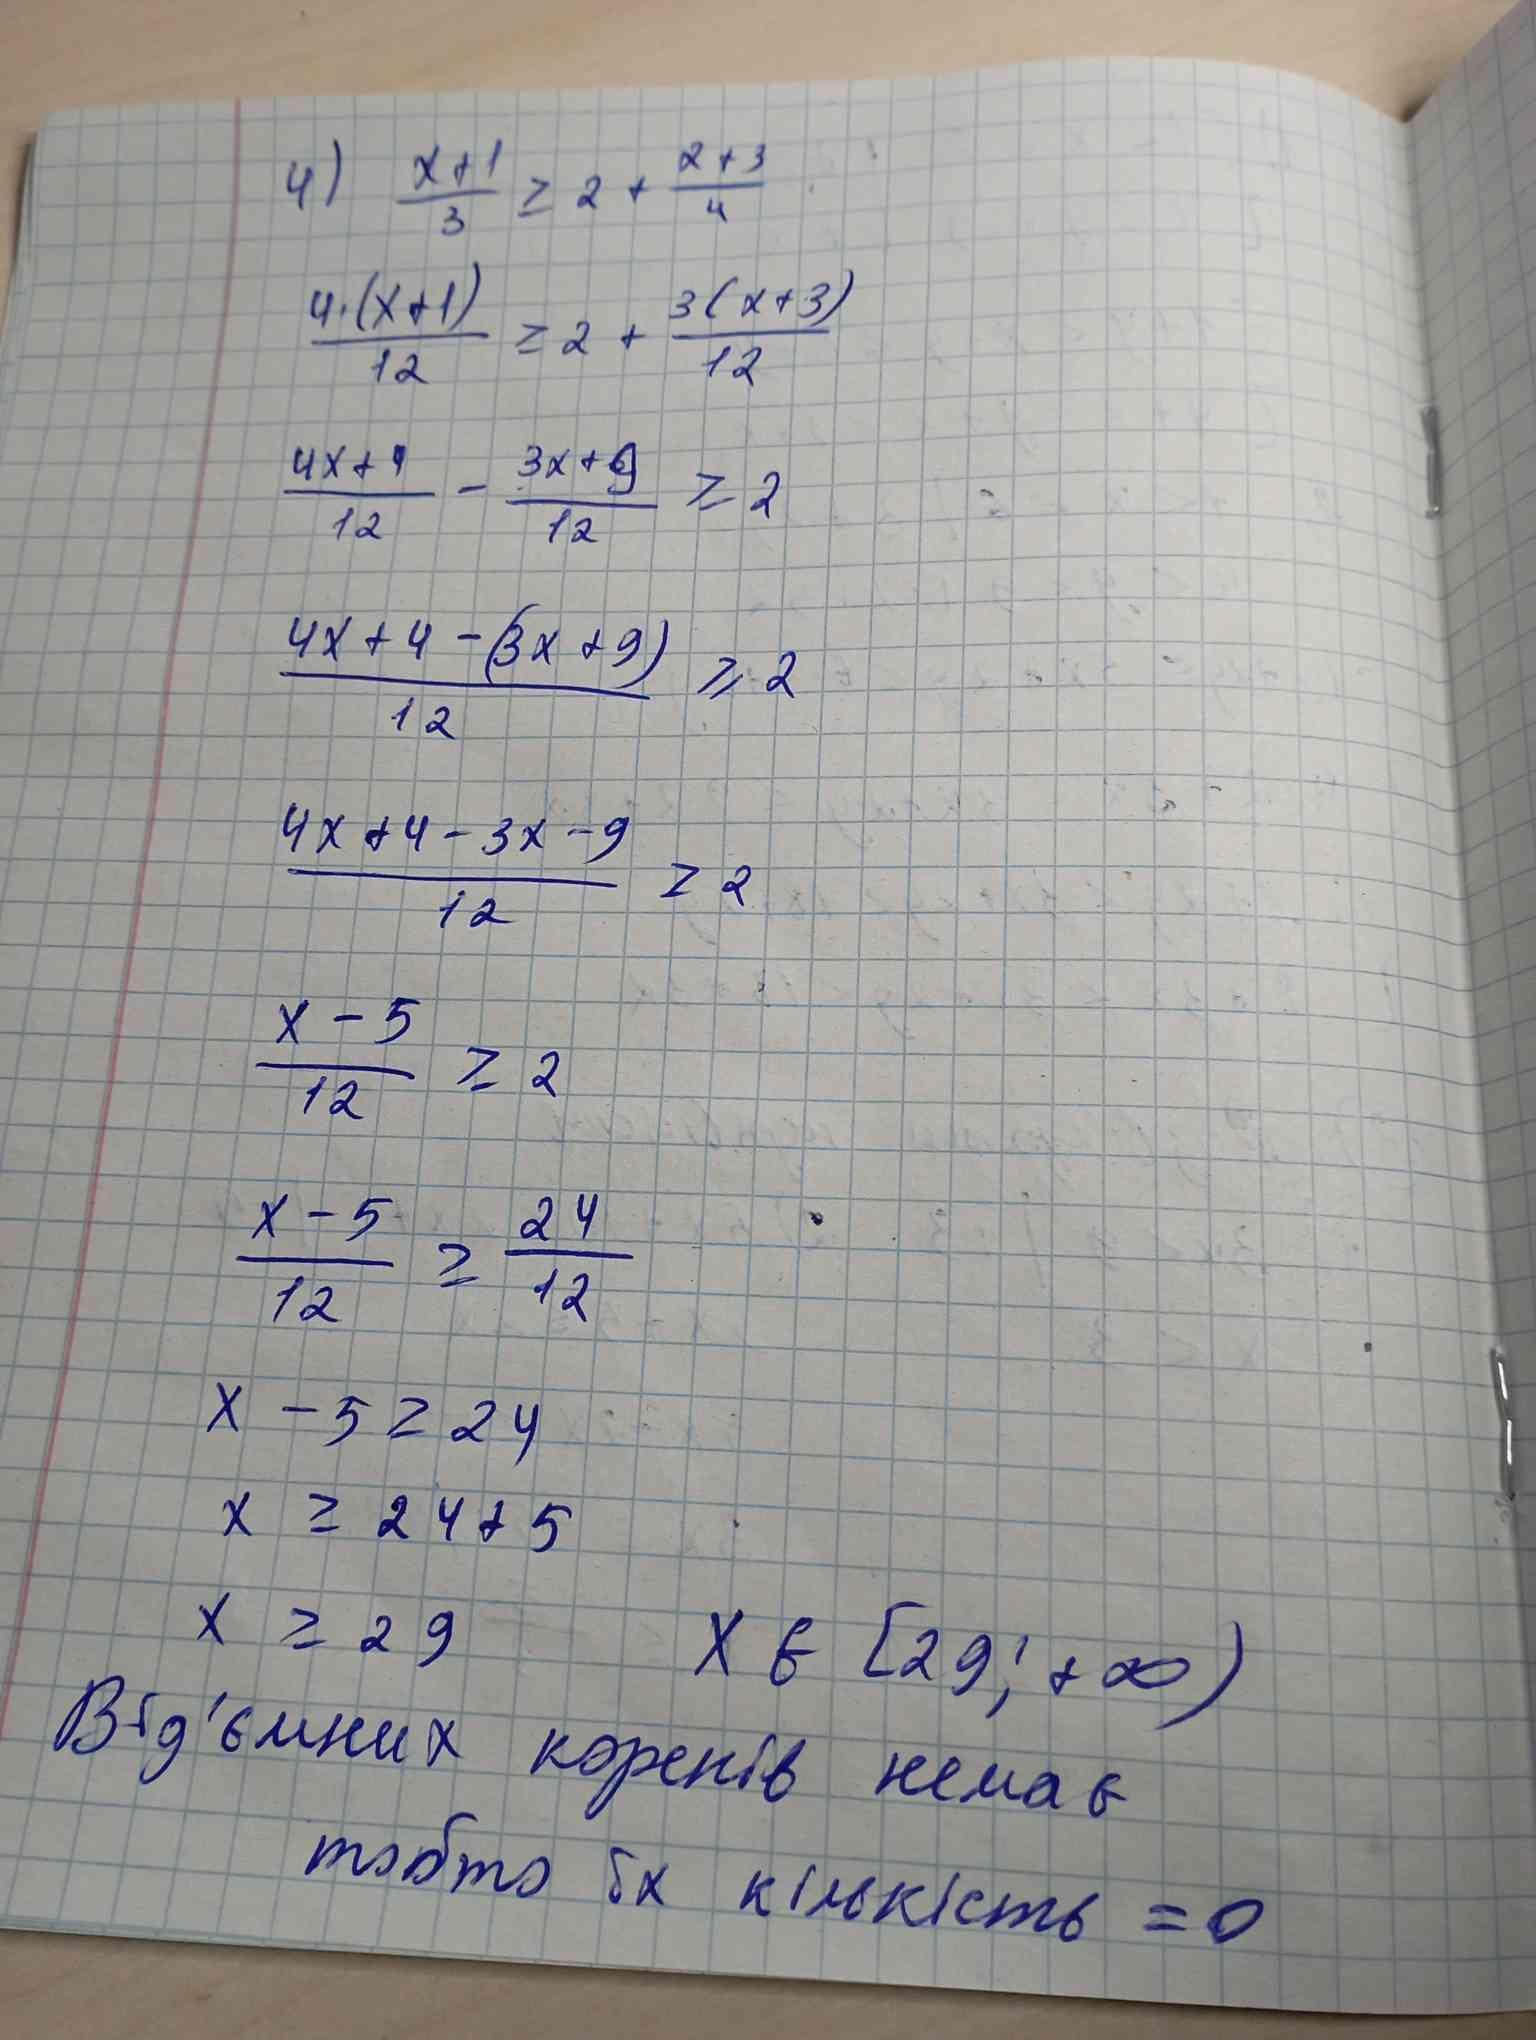 4) (x+1)/3 ≥ 2 + (2+3)/4
(4·(x+1))/12 ≥ 2 + (3(x+3))/12
(4x+4)/12 - (3x+9)/12 ≥ 2
(4x+4-(3x+9))/12 ≥ 2
(4x+4-3x-9)/12 ≥ 2
(x-5)/12 ≥ 2
(x-5)/12 ≥ 24/12
x-5 ≥ 24
x ≥ 24+5
x ≥ 29 x є [29; +∞)
Від'ємних коренів немає
тобто їх кількість = 0